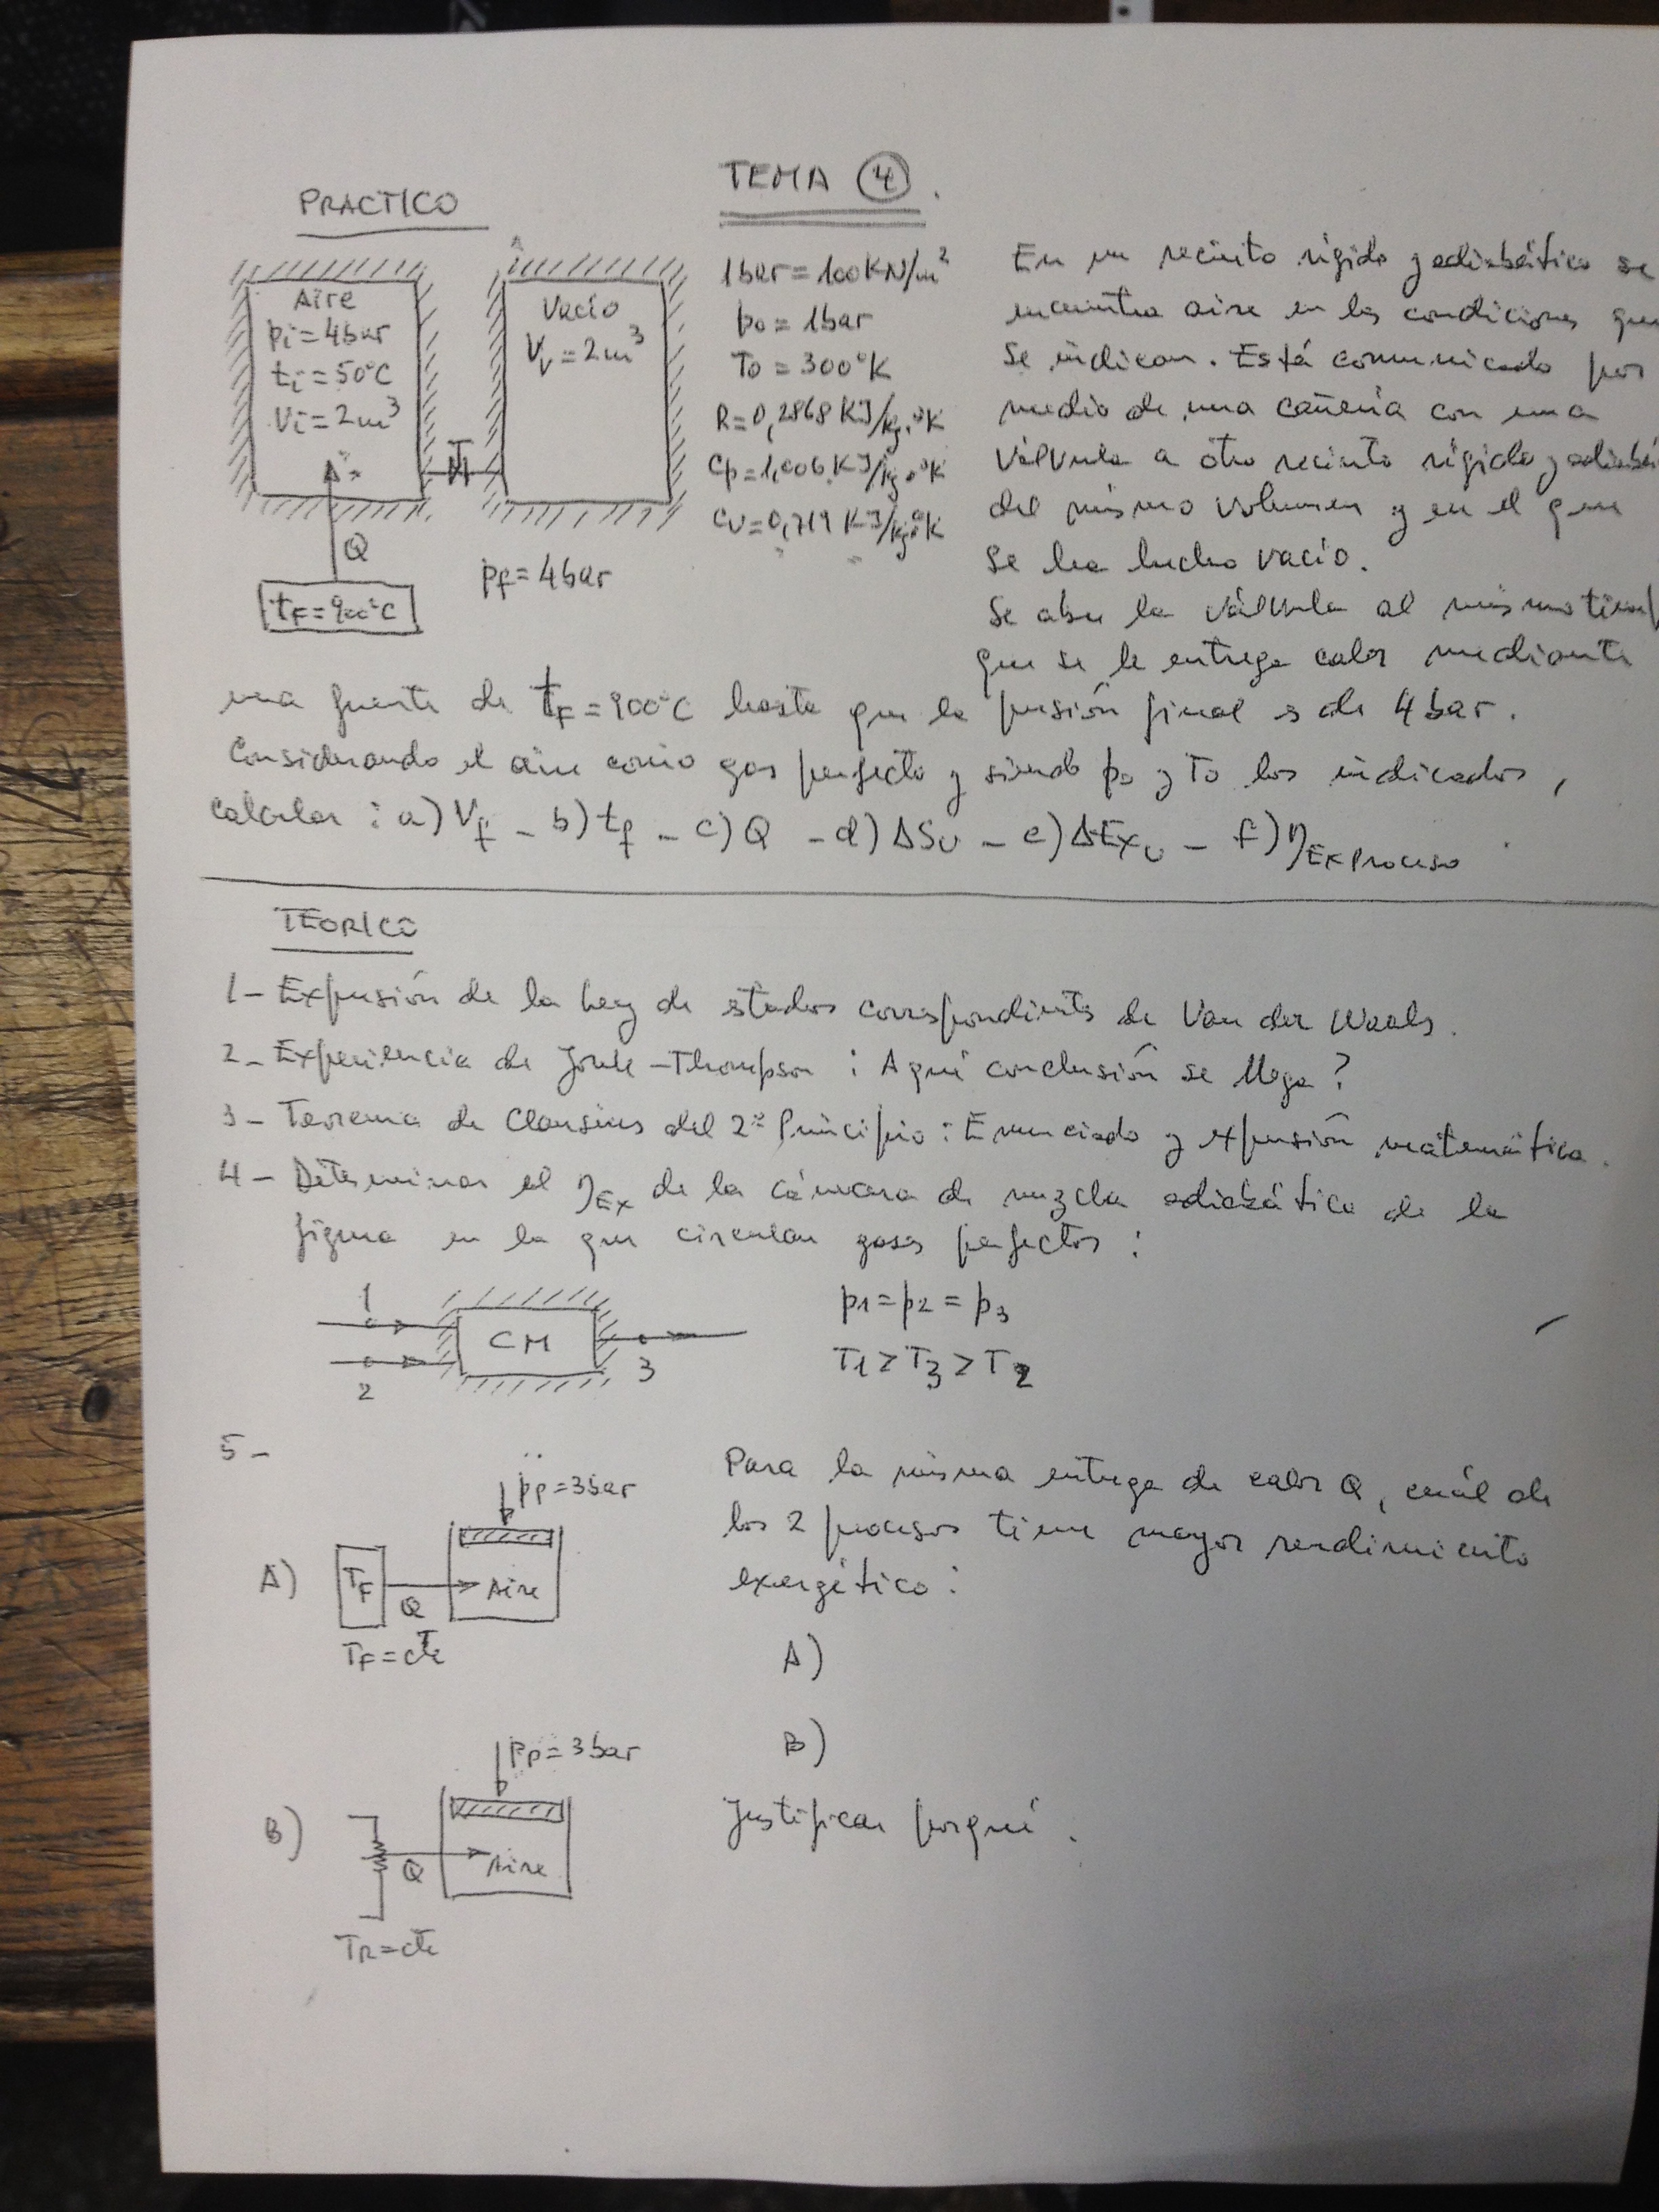 TEMA 4.
PRACTICO
Aire
pi = 4bar
ti = 50°C
Vi = 2m³
Q
tF = 900°C
Vacío
Vv = 2m³
pf = 4bar
1bar = 100KN/m²
po = 1bar
To = 300°K
R = 0,2868 KJ/kg.°K
Cp = 1,006 KJ/kg.°K
Cv = 0,719 KJ/kg.°K
En un recinto rígido y adiabático se
encuentra aire en las condiciones que
se indican. Está comunicado por
medio de una cañería con una
válvula a otro recinto rígido y adiabá
del mismo volumen y en el que
se ha hecho vacío.
Se abre la válvula al mismo tiemp
que se le entrega calor mediante
una fuente de tF = 900°C hasta que la presión final es de 4 bar.
Considerando el aire como gas perfecto y siendo po y To los indicados,
calcular : a) Vf - b) tf - c) Q - d) ΔSU - e) ΔExU - f) ηEx Proceso
TEORICO
1- Expresión de la Ley de estados correspondientes de Van der Waals.
2- Experiencia de Joule - Thompson : A qué conclusión se llega ?
3- Teorema de Clausius del 2º Principio : Enunciado y expresión matemática.
4- Determinar el ηEx de la cámara de mezcla adiabática de la
figura en la que circulan gases perfectos :
1
2
CM
3
p1 = p2 = p3
T1 > T3 > T2
5-
A)
TF
Q
Aire
pp = 3bar
TF = cte
Para la misma entrega de calor Q, cuál de
los 2 procesos tiene mayor rendimiento
exergético :
A)
B)
Justificar porqué.
B)
Q
Aire
Pp = 3bar
TR = cte